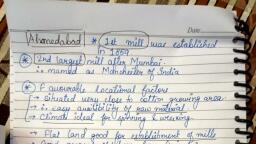 Date
Ahmedabad * 1st mill was established
in 1859
* 2nd largest mill after Mumbai.
∴ named as Manchester of India
* Favourable locational factors
→ Situated very close to cotton growing area
→ ∴ easy availibility of raw material
→ Climate ideal for spinning & weaving
→ Flat land good for establishment of mills